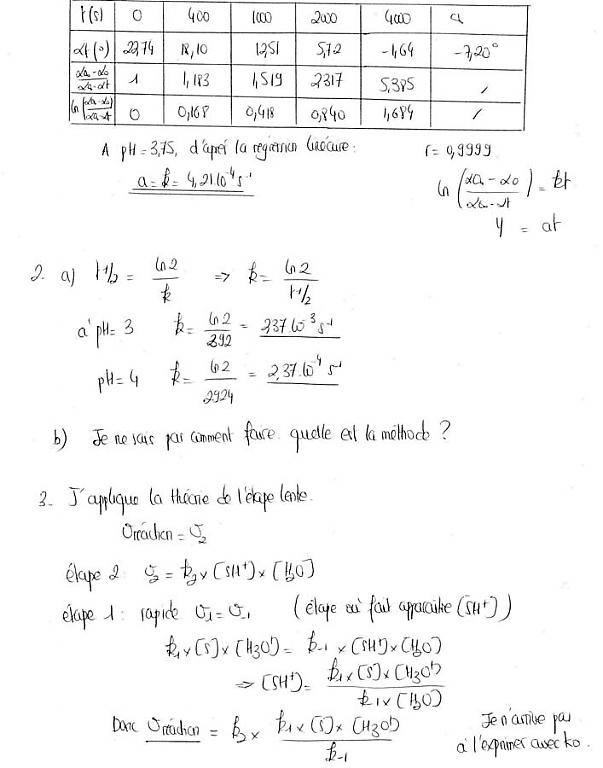 t(s) 0 400 1000 2000 4000 ∞
αt(°) 22,74 18,10 12,51 5,72 -1,64 -7,20°
α∞-α0/α∞-αt 1 1,183 1,519 2317 5,385 /
ln(α∞-α0/α∞-αt) 0 0,168 0,418 0,840 1,684 /
A pH=3,75, d'après la régression linéaire: r=0,9999
a=k=4,21.10⁻⁴ s⁻¹
ln(α∞-α0/α∞-αt) = kt
y = at
2. a) t1/2 = ln2/k => k = ln2/t1/2
a' pH=3 k = ln2/292 = 2,37.10⁻³ s⁻¹
pH=4 k = ln2/2924 = 2,37.10⁻⁴ s⁻¹
b) Je ne sais pas comment faire. quelle est la méthode ?
3- J'applique la théorie de l'étape lente.
Vréaction = V2
étape 2: V2 = k2 × [SH⁺] × [H2O]
étape 1: rapide V1=V-1 (étape où fait apparaître [SH⁺])
k1×[S]×[H3O⁺] = k-1 × [SH⁺]×[H2O]
=> [SH⁺] = k1×[S]×[H3O⁺]/k-1×[H2O]
Donc Vréaction = k2 × k1×[S]×[H3O⁺]/k-1
Je n'arrive pas
à l'exprimer avec k0.